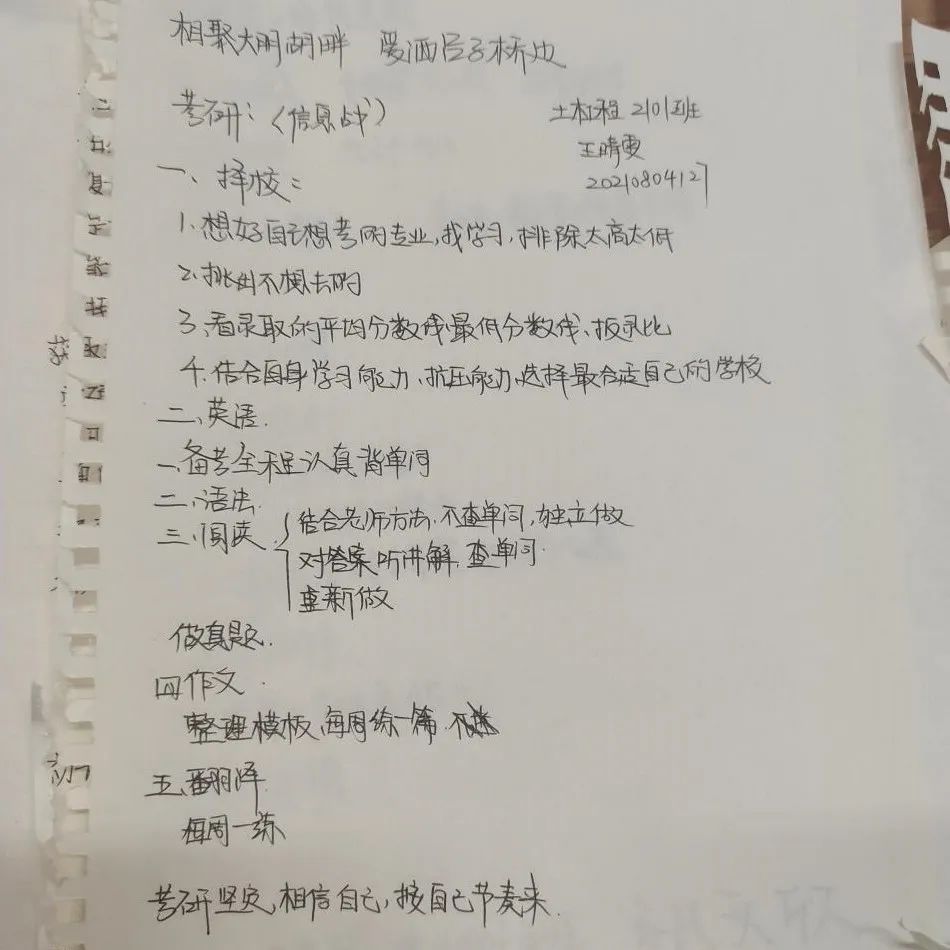 相聚大明湖畔 爱洒臣子桥边
考研:(信息战)
土木工程2101班
王晴雯
20210804127
一、择校:
1.想好自己想考的专业,找学习,排除太高太低
2.挑出不想去的
3.看录取的平均分数线、最低分数线、报录比
4.结合自身学习能力、抗压能力,选择最合适自己的学校
二、英语.
一、备考全程认真背单词
二、语法.
三、阅读.
结合老师方法,不查单词,独立做
对答案听讲解,查单词.
重新做
做真题.
四作文.
整理模板,每周练一篇.
五、翻译.
每周一练
考研坚定,相信自己,按自己节奏来.